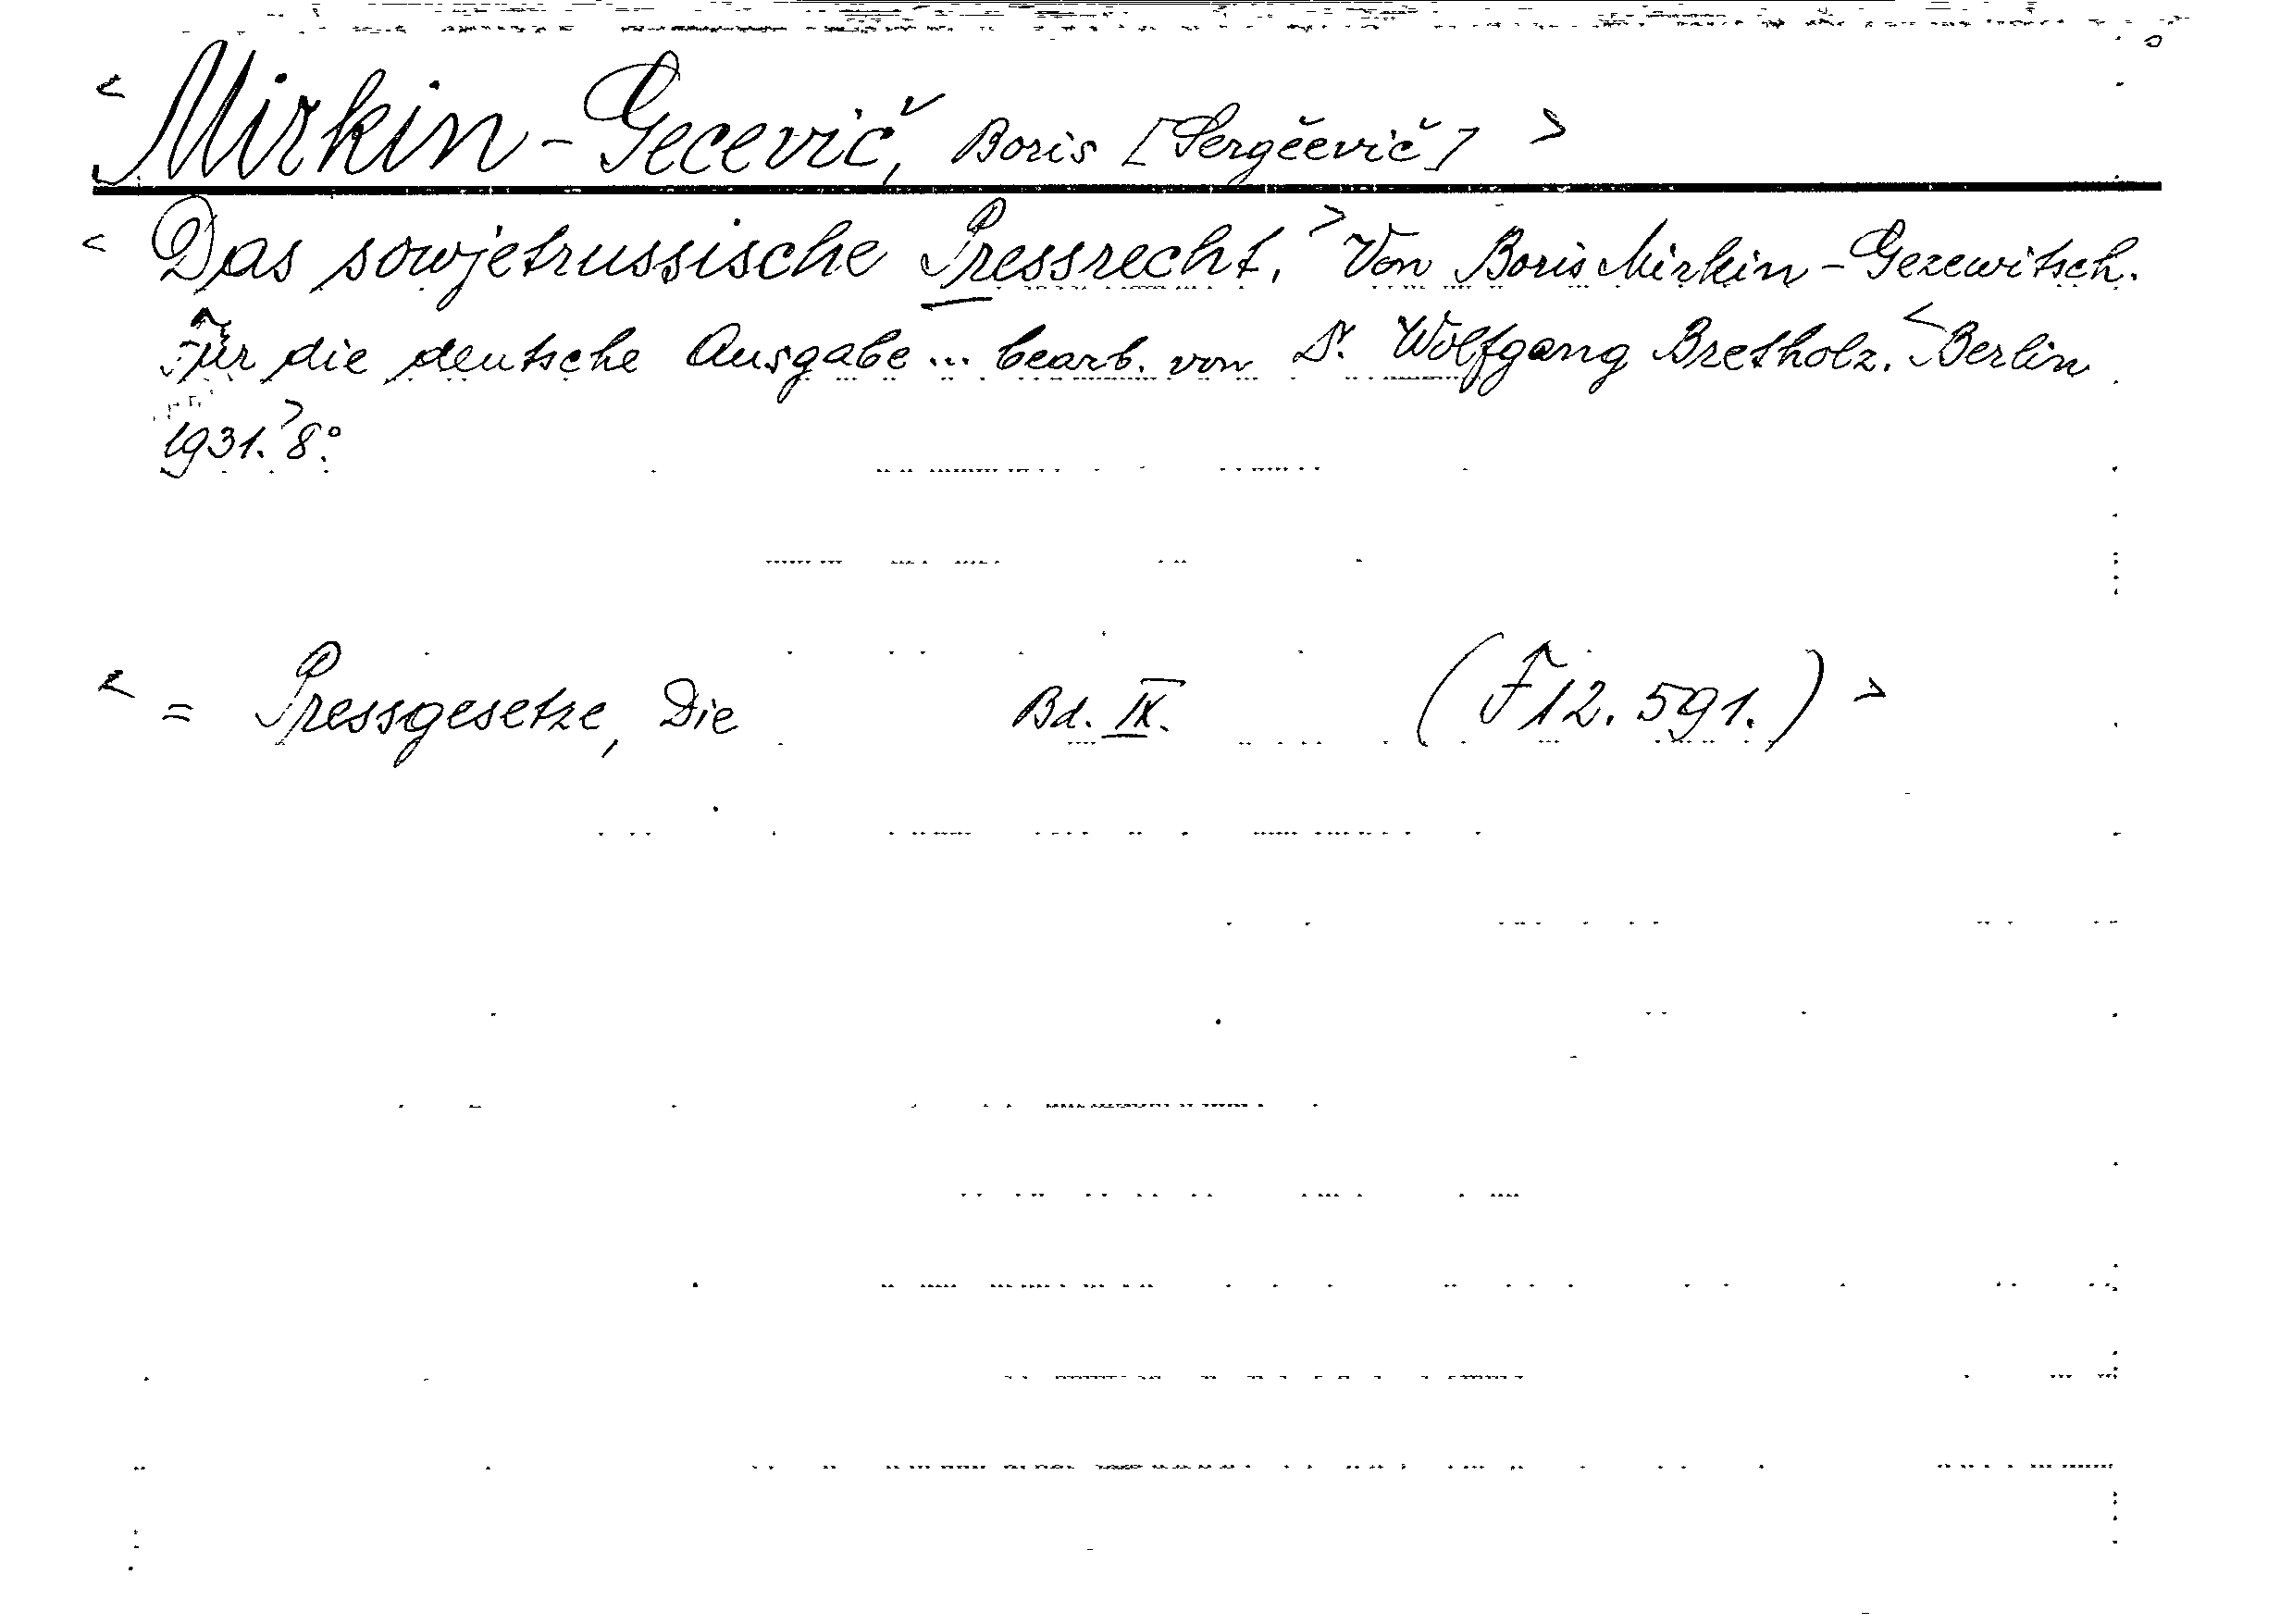 < Mirkin-Gecevič, Boris [Sergěevič] >
< Das sowjetrussische Pressrecht. > Von Boris Mirkin-Gezewitsch.
Für die deutsche Ausgabe ... bearb. von Dr. Wolfgang Bretholz. < Berlin
1931. > 8°.
< = Pressgesetze, Die Bd. IX. (F 12. 591.) >